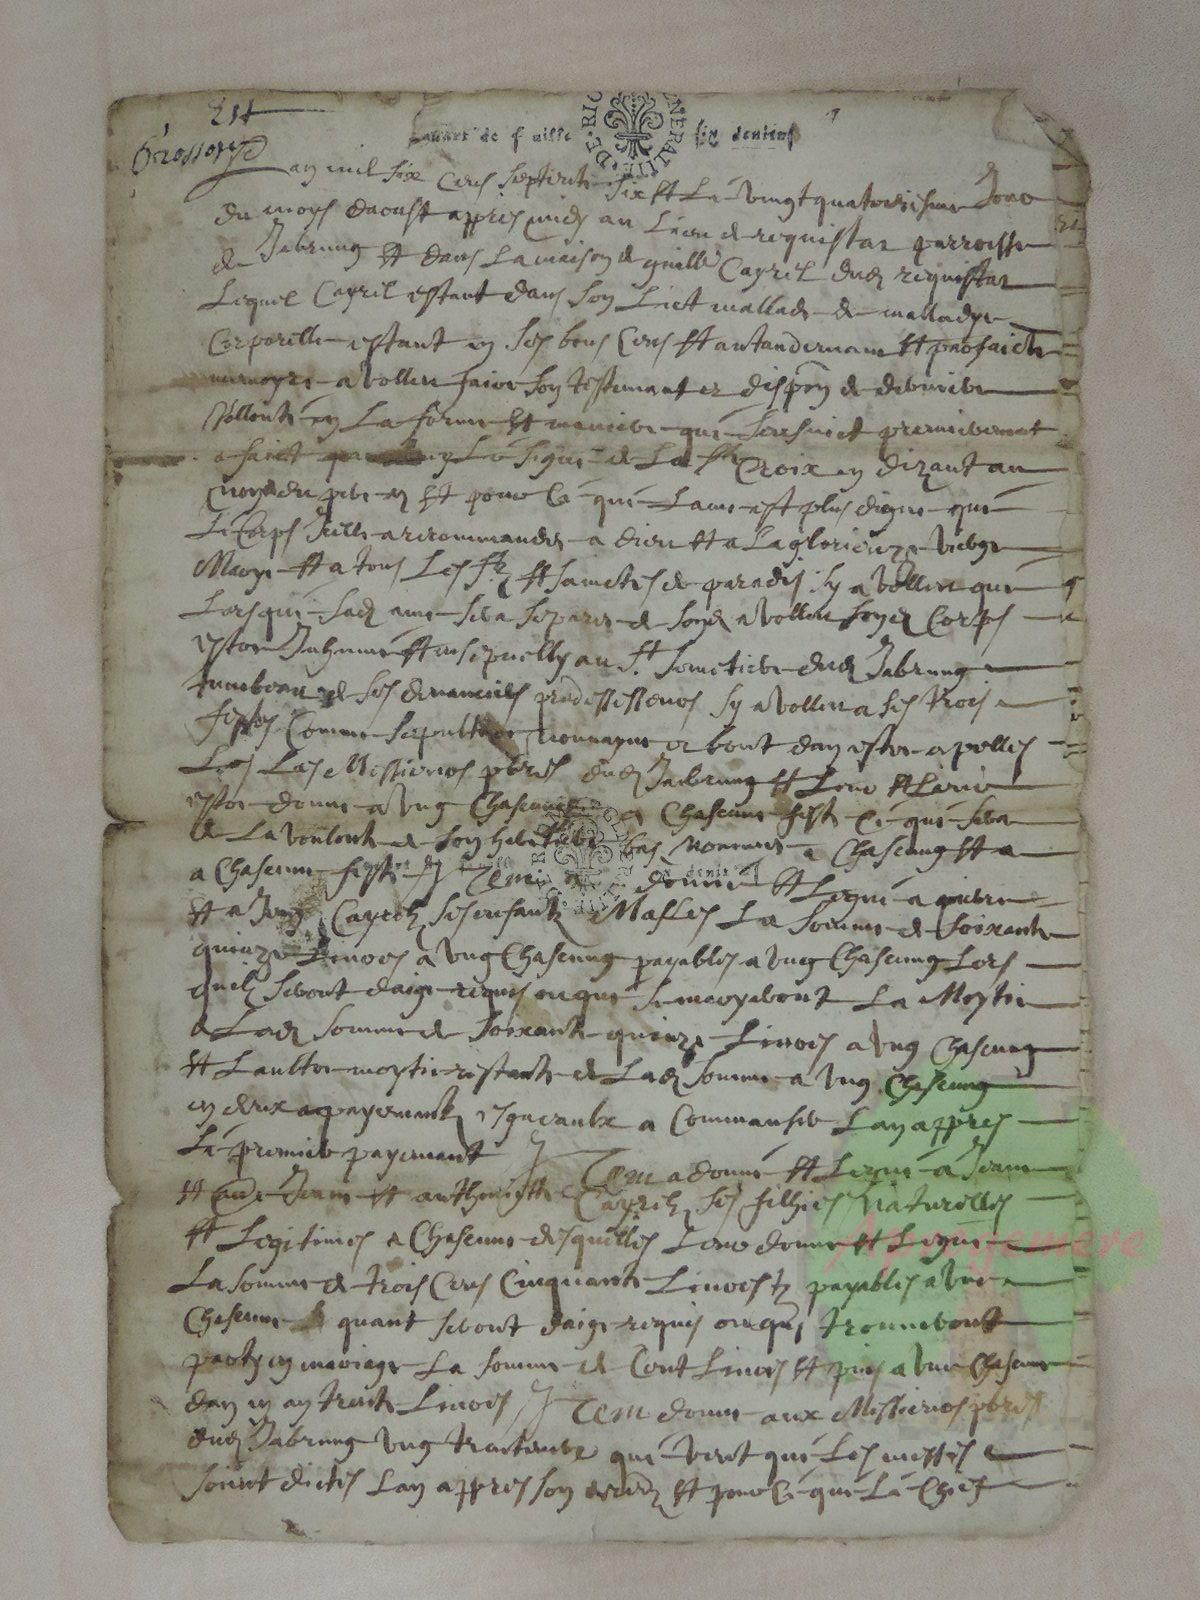 214
Grossoyé
quart de f uille six deniers
DE RIO NERALITE
Lan mil six cens septente six et le vingtquatorsiesme Jour
du moys daoust appres midy au lieu de requistar parroisse
de Jabrung et dans la maison de guille Cayrel dud requistar
Lequel Cayrel estant dans son lict mallade de malladye
Corporelle estant en ses bons cens et antandemant et parfaicte
memoyre a vollu faire son testemant et dispon de derniere
vollonte en la forme et maniere que sensuict premieremant
a faict le signe de la ste Croix en dizant au
nom du pere et pour ce que lame est plus digne que
le Corps Icelle a recommandée a dieu et a la glorieuze vierge
Marye et a tous les sts et sainctes de paradis sy a vollu que
lors que sad ame sera separee de sond a vollu sond Corps
estre Inhumé et ensepuelly au st semetiere dud Jabrung
tumbeau de ses predessesseurs sy a vollu a ses trois
festes Comme sepulture nouvayne et bout dan estre apelles
les Messieurs pbres dud Jabrung et leur
estre donné a ung chascung a chascune feste ce que sera
de la vollonte de son heretiere bas nommée a chascung et a
a chascune feste Item a donné et legué a pierre
et a Cayrels ses enfants masles la somme de soixante
quinze livres a ung chascung payables a ung chascung lors
quils seront daige requis ou que se mayeront la moytie
de lad somme de soixante quinze livres a ung chascung
et laultre moytie restante de lad somme a ung chascung
en deux payemants esgueaulx a commanser lan appres
le premier payemant Item a donné et legué a Jeanne
et autre Jeanne et anthoinette Cayrels ses filhes naturelles
et legitimes a chascune desquelles leur donne et legue
la somme de trois cens cinquante livres tz payables a une
chascune quant seront daige requis ou quelles trouveront
party en mariage la somme de cent livres et puis a une chascune
dan en an trente livres Item donne aux Messieurs pbres
dud Jabrung ung que veut que les messes
soient dictes lan appres son deces et pour ce que le chief
Abroyemere